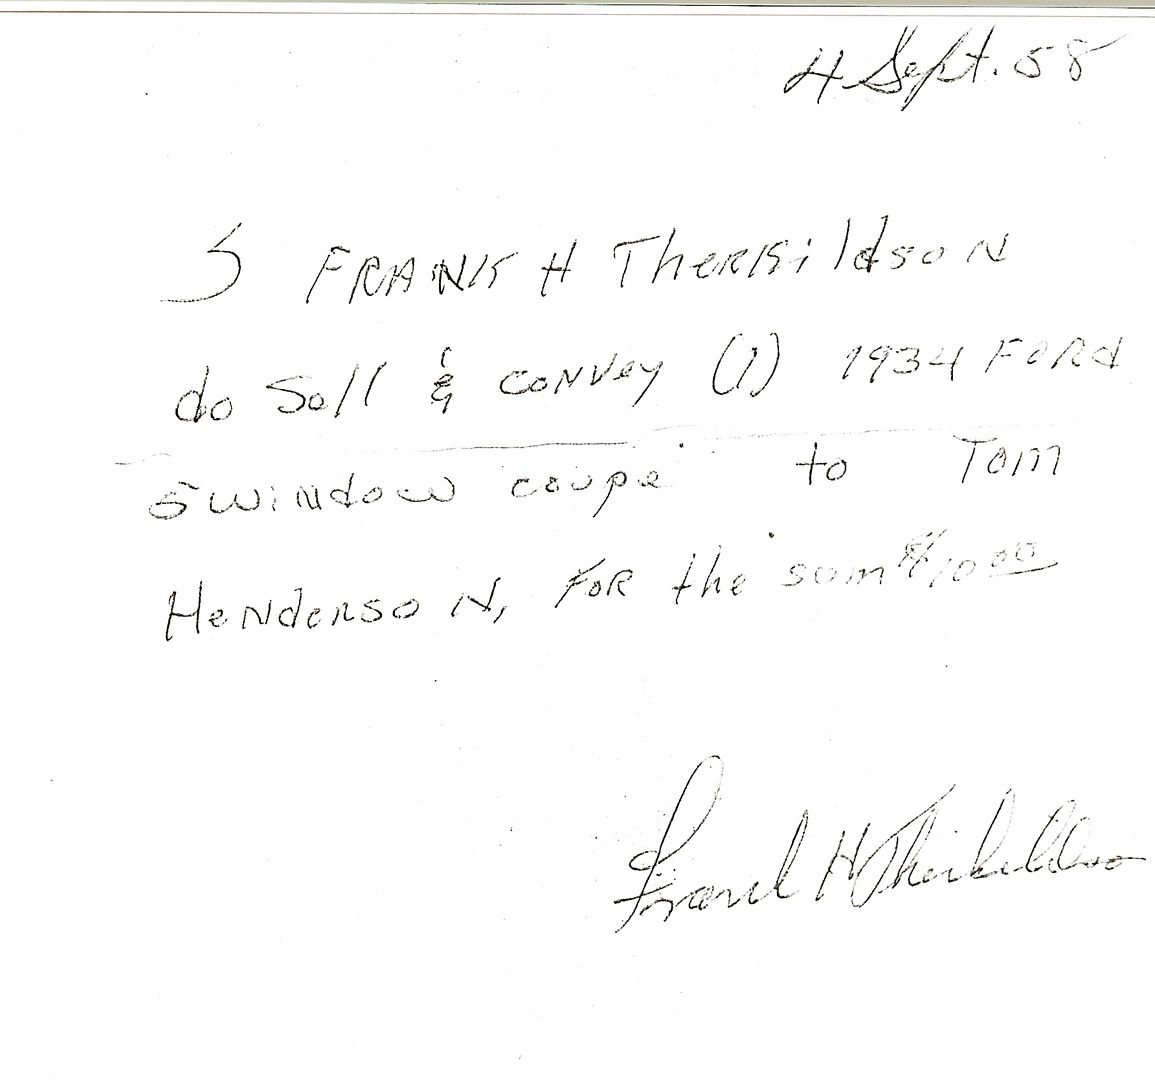 4 Sept. 58
I FRANK H TherKildsoN
do Sell & coNVey (1) 1934 FoRd
5 wiNdow coupe to Tom
HeNdersoN, FOR the sum $10 00
Frank H Therkildson